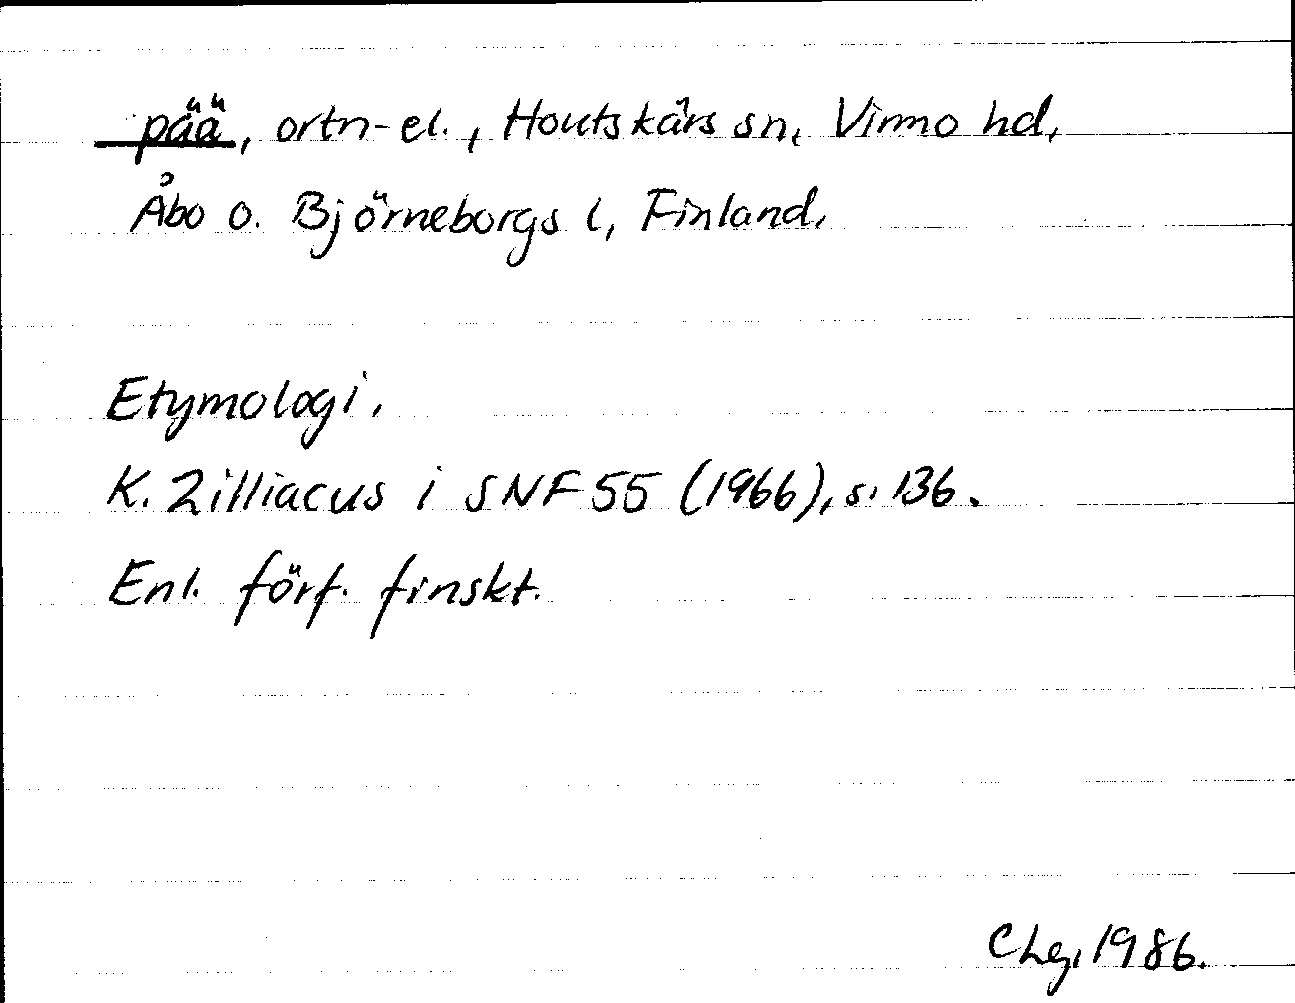 -pää, ortn-el., Houtskärs sn, Virmo hd,
Åbo o. Björneborgs l, Finland.
Etymologi.
K. Zilliacus i SNF 55 (1966), s. 136.
Enl. förf. finskt.
CLg, 1986.